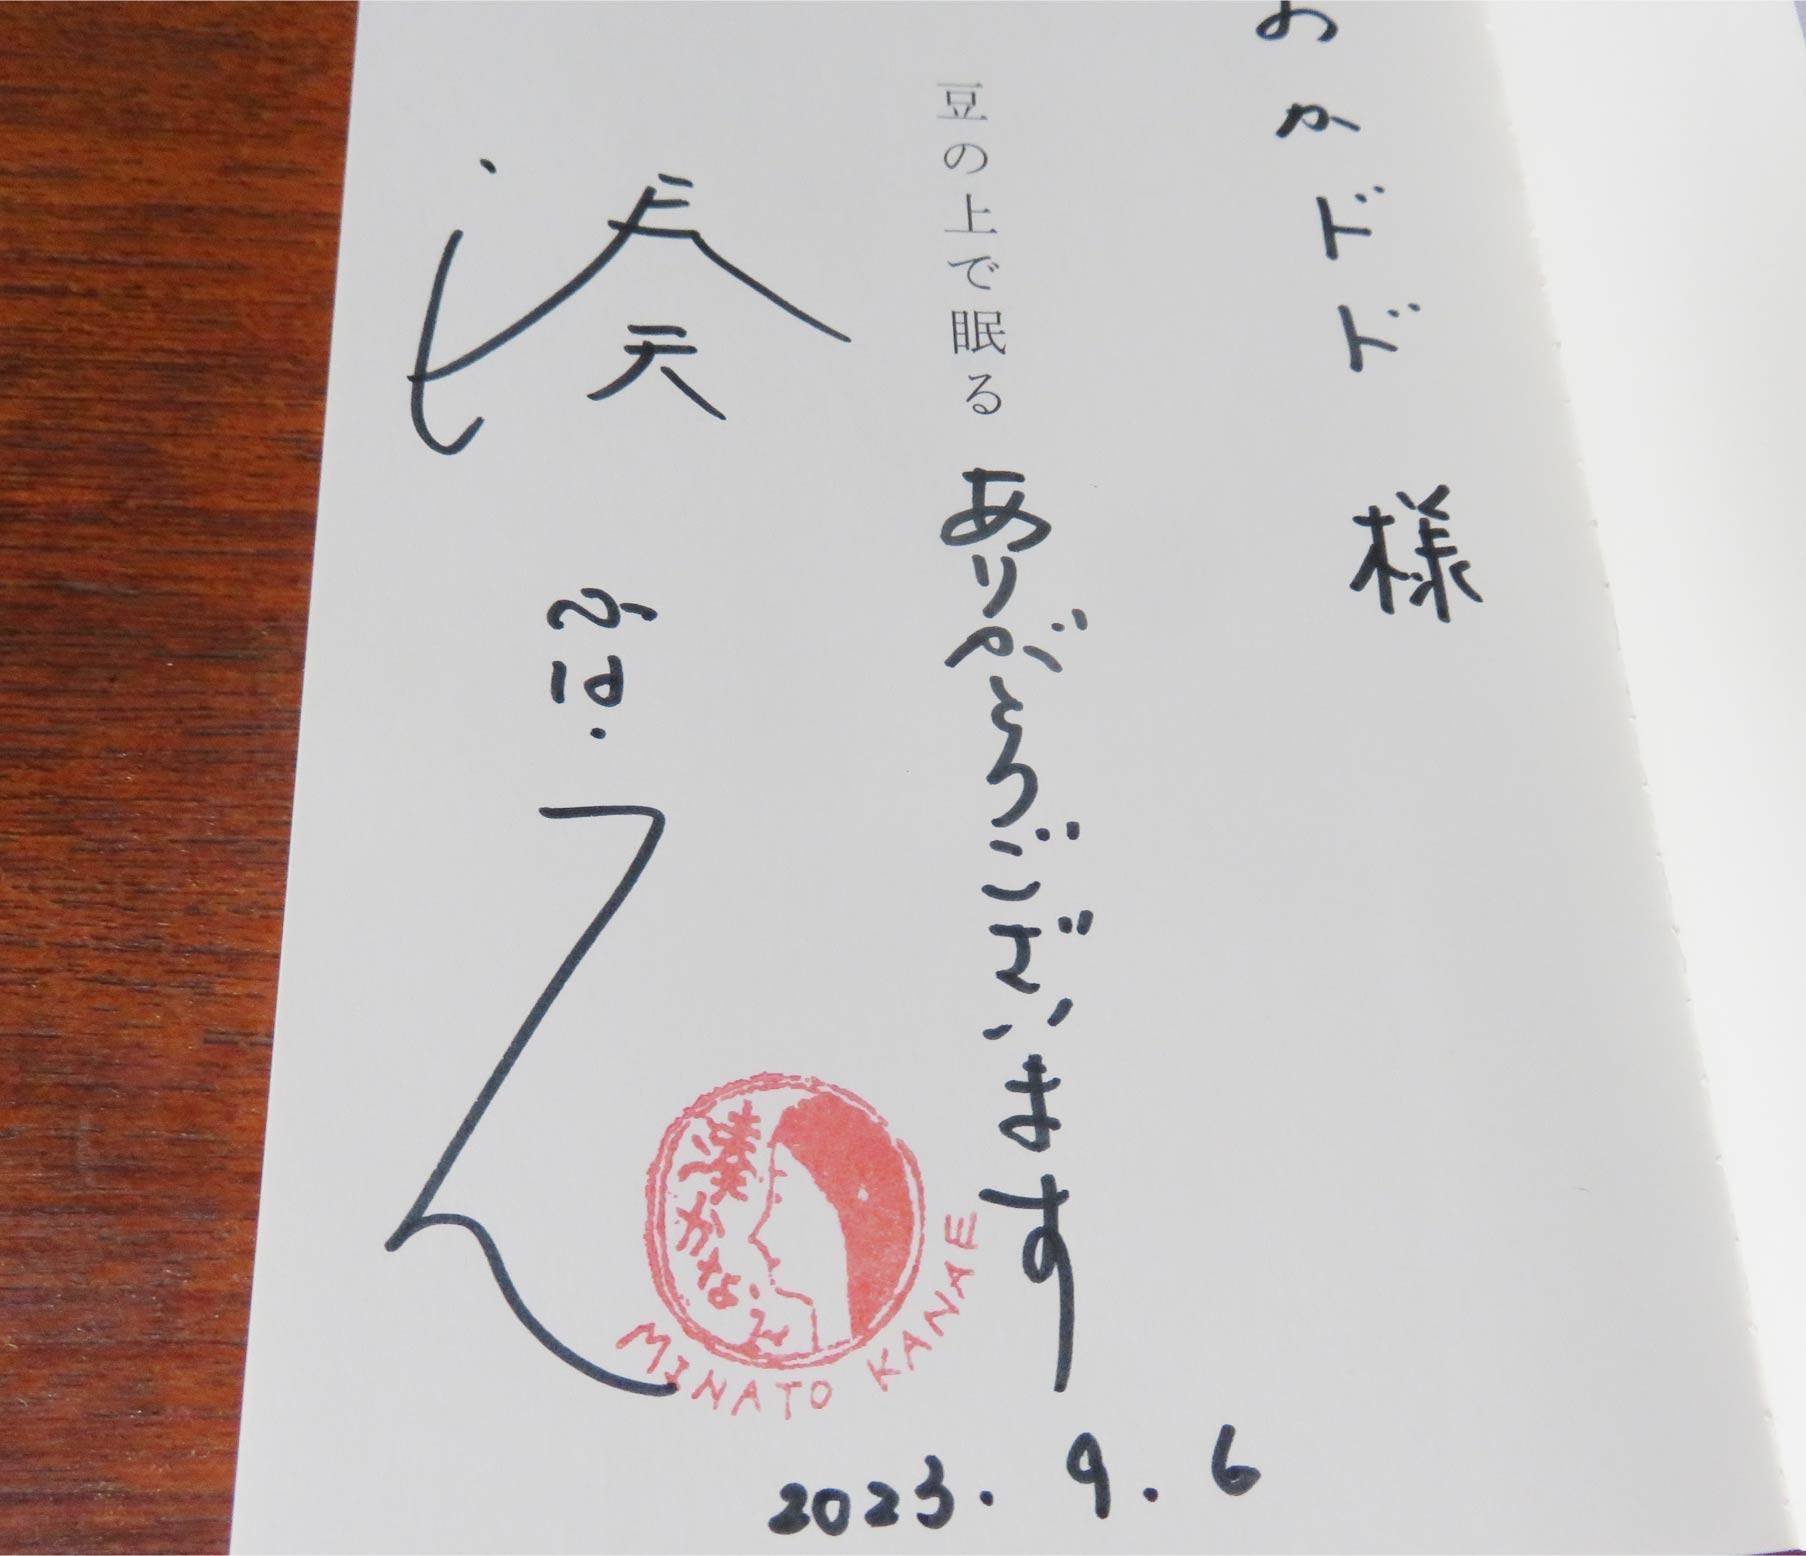 おかドド 様
豆の上で眠る
ありがとうございます
湊かなえ
湊かなえ
MINATO KANAE
2023.9.6